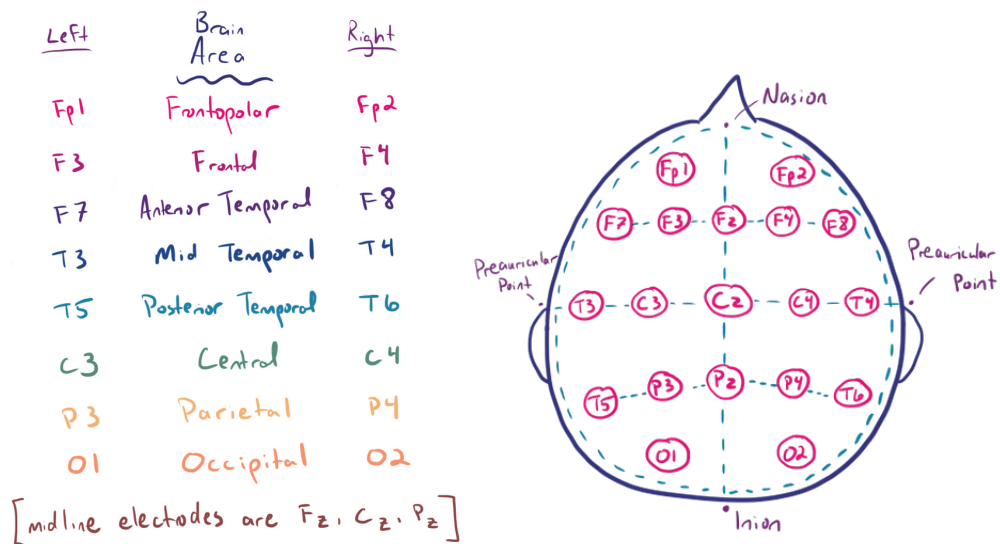 Left Brain Area Right
Fp1 Frontopolar Fp2
F3 Frontal F4
F7 Anterior Temporal F8
T3 Mid Temporal T4
T5 Posterior Temporal T6
C3 Central C4
P3 Parietal P4
O1 Occipital O2
[midline electrodes are Fz, Cz, Pz]
Nasion
Fp1 Fp2
F7 F3 Fz F4 F8
Preauricular Point
Preauricular Point
T3 C3 Cz C4 T4
T5 P3 Pz P4 T6
O1 O2
Inion